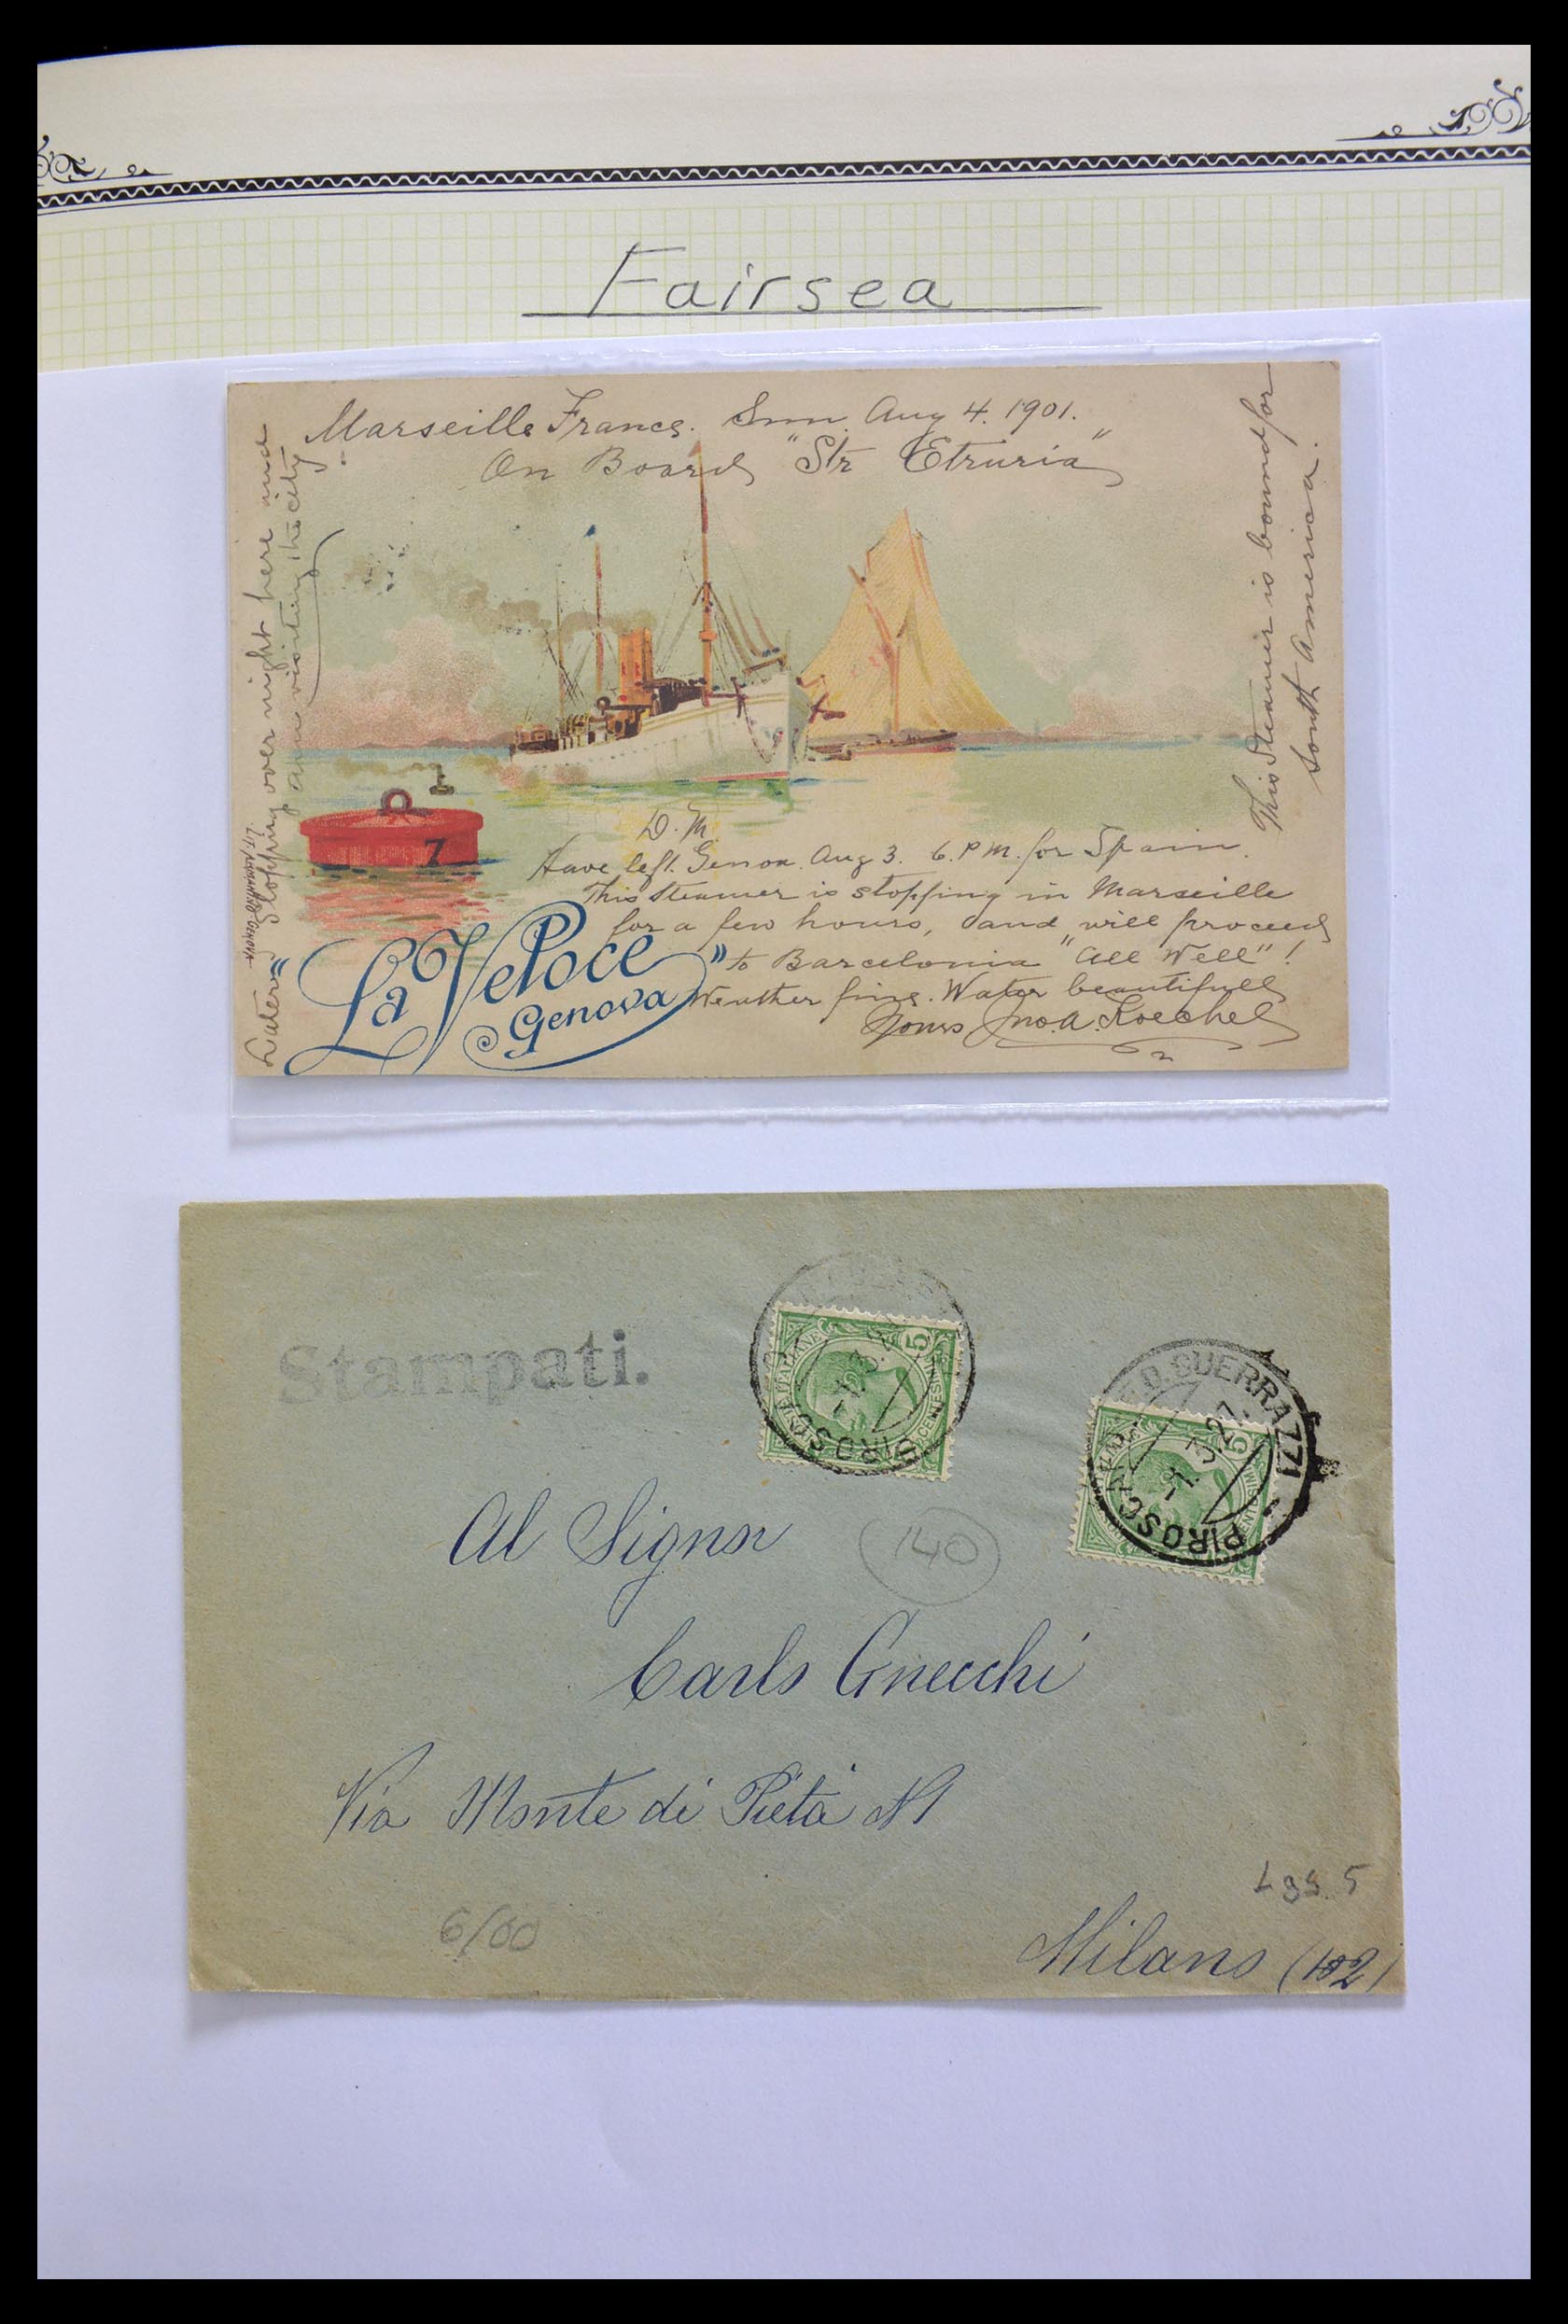 Fairsea
Marseille France. Sun. Aug 4. 1901.
On Board "Str Etruria"
This Steamer is bound for
South America.
D. M.
Have left Genoa. Aug 3. 6. P M. for Spain.
This Steamer is stopping in Marseille
for a few hours, and will proceed
to Barcelonia "All Well"!
Weather fine. Water beautifull
Yours Jno. A. Koechel
Later = Stopping over night here and
am visiting the city
7
LIT. ARMANINO-GENOVA
"La Veloce"
Genova
Stampati.
POSTE ITALIANE
5
CENTESIMI
PIROSC
PIROSCAFO F.D. GUERRAZZI
-1.3.27.
5
140
Al Signor
Carlo Gnecchi
Via Monte di Pietà N 1
6/00
Milano (102)